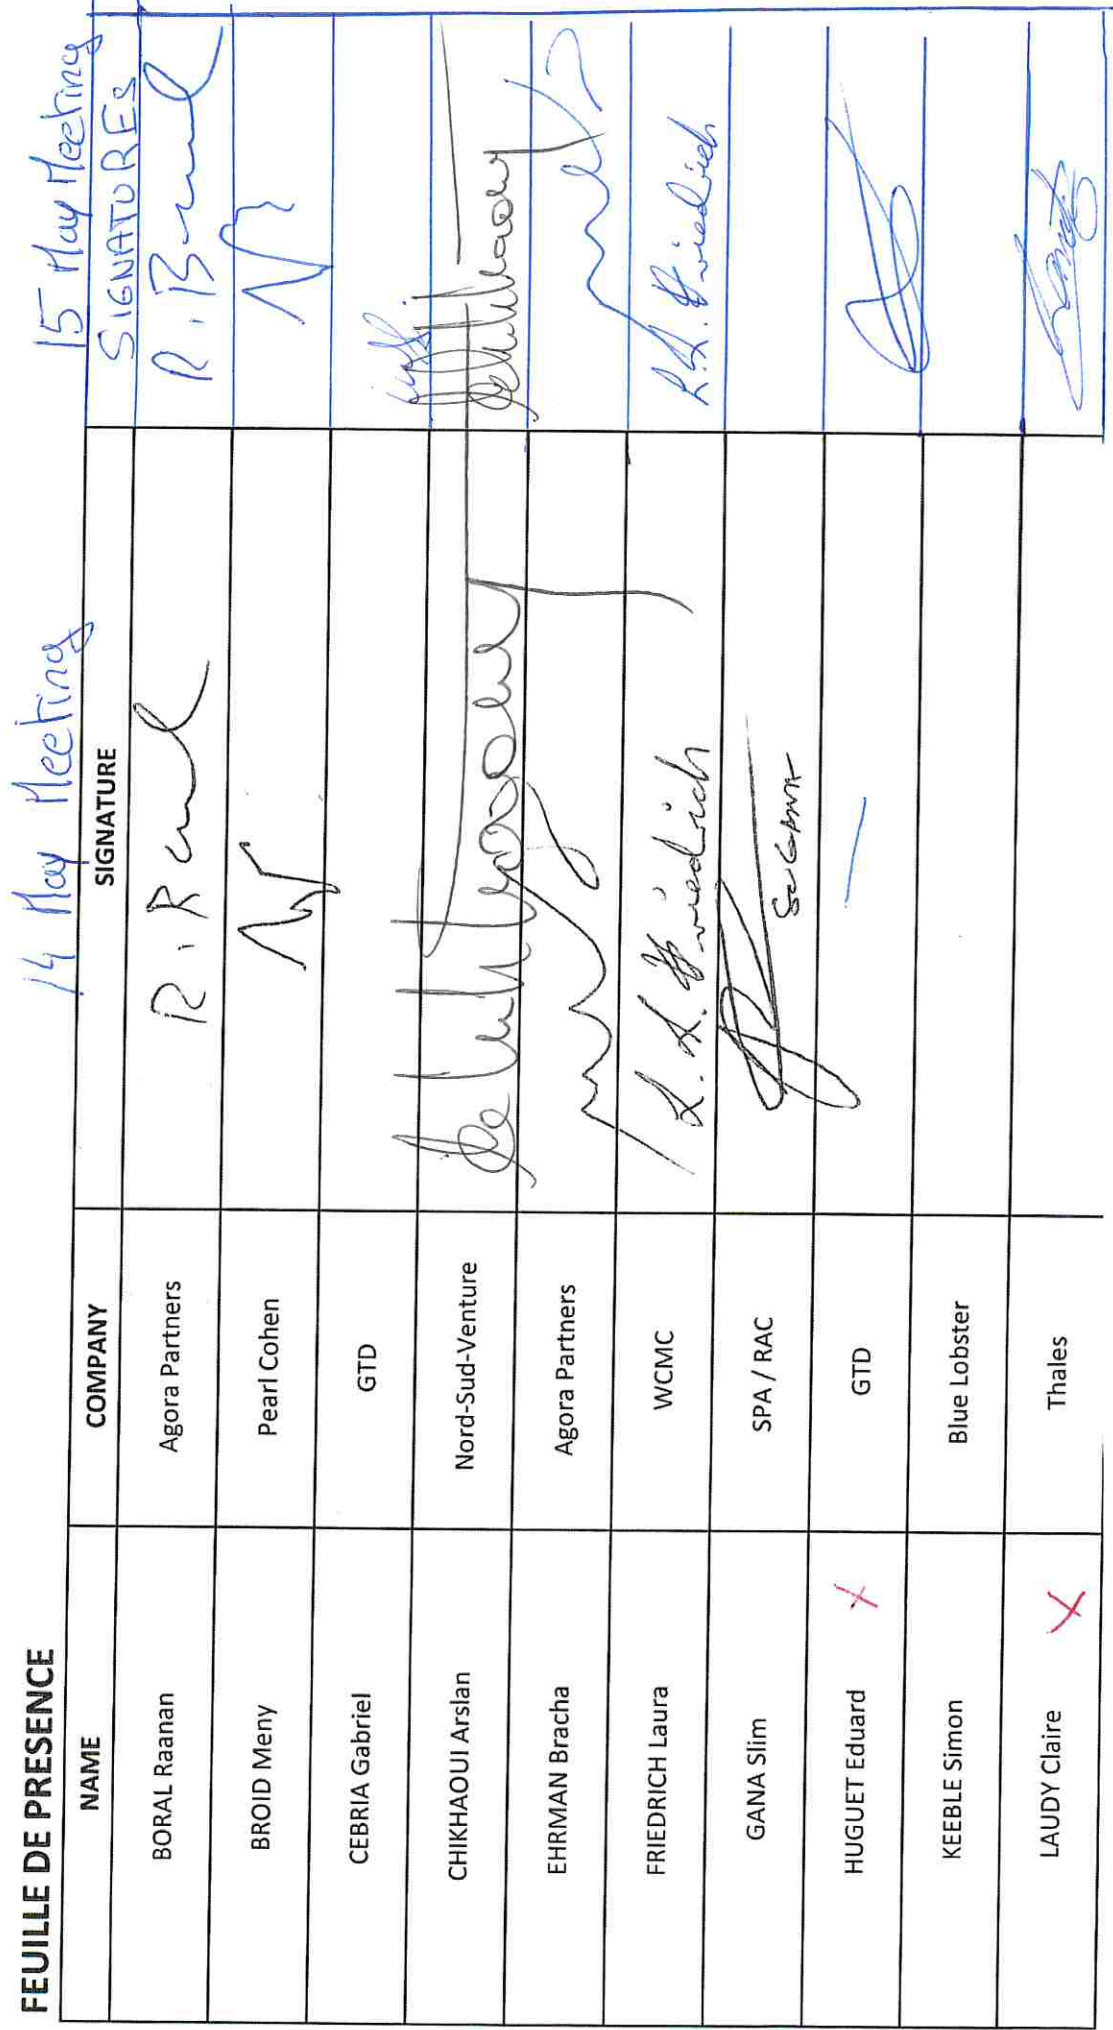 14 May Meeting 15 May Meeting
FEUILLE DE PRESENCE
NAME COMPANY SIGNATURE SIGNATURES
BORAL Raanan Agora Partners
BROID Meny Pearl Cohen
CEBRIA Gabriel GTD
CHIKHAOUI Arslan Nord-Sud-Venture
EHRMAN Bracha Agora Partners
FRIEDRICH Laura WCMC L. L. Friedrich L. L. Friedrich
GANA Slim SPA / RAC
HUGUET Eduard X GTD —
KEEBLE Simon Blue Lobster
LAUDY Claire X Thales